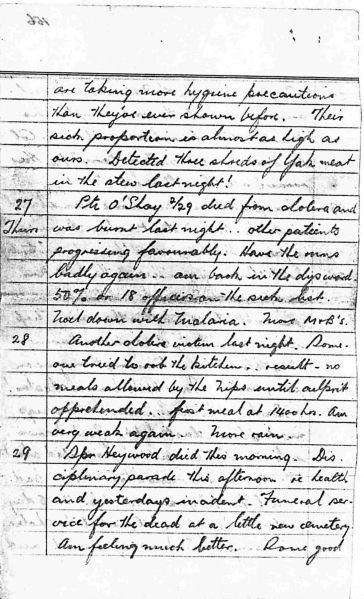 156
are taking more hygiene precautions
than they've ever shown before. Their
sick proportion is almost as high as
ours. Detected three shreds of Yak meat
in the stew last night!
27 Pte O'Shay 2/29 died from cholera and
Thurs was burnt last night.. other patients
progressing favourably. Have the runs
badly again.. am back in the dys ward.
50% or 18 officers on the sick list.
down with Malaria. More M+B's.
28 Another cholera victim last night. Some-
one tried to rob the kitchen.. result - no
meals allowed by the Nips until culprit
apprehended.. first meal at 1400 hrs. Am
very weak again. More rain.
29 Spr Heywood died this morning. Dis
ciplinary parade this afternoon re health
and yesterdays incident. Funeral ser-
vice for the dead at a little new cemetery.
Am feeling much better. Some good